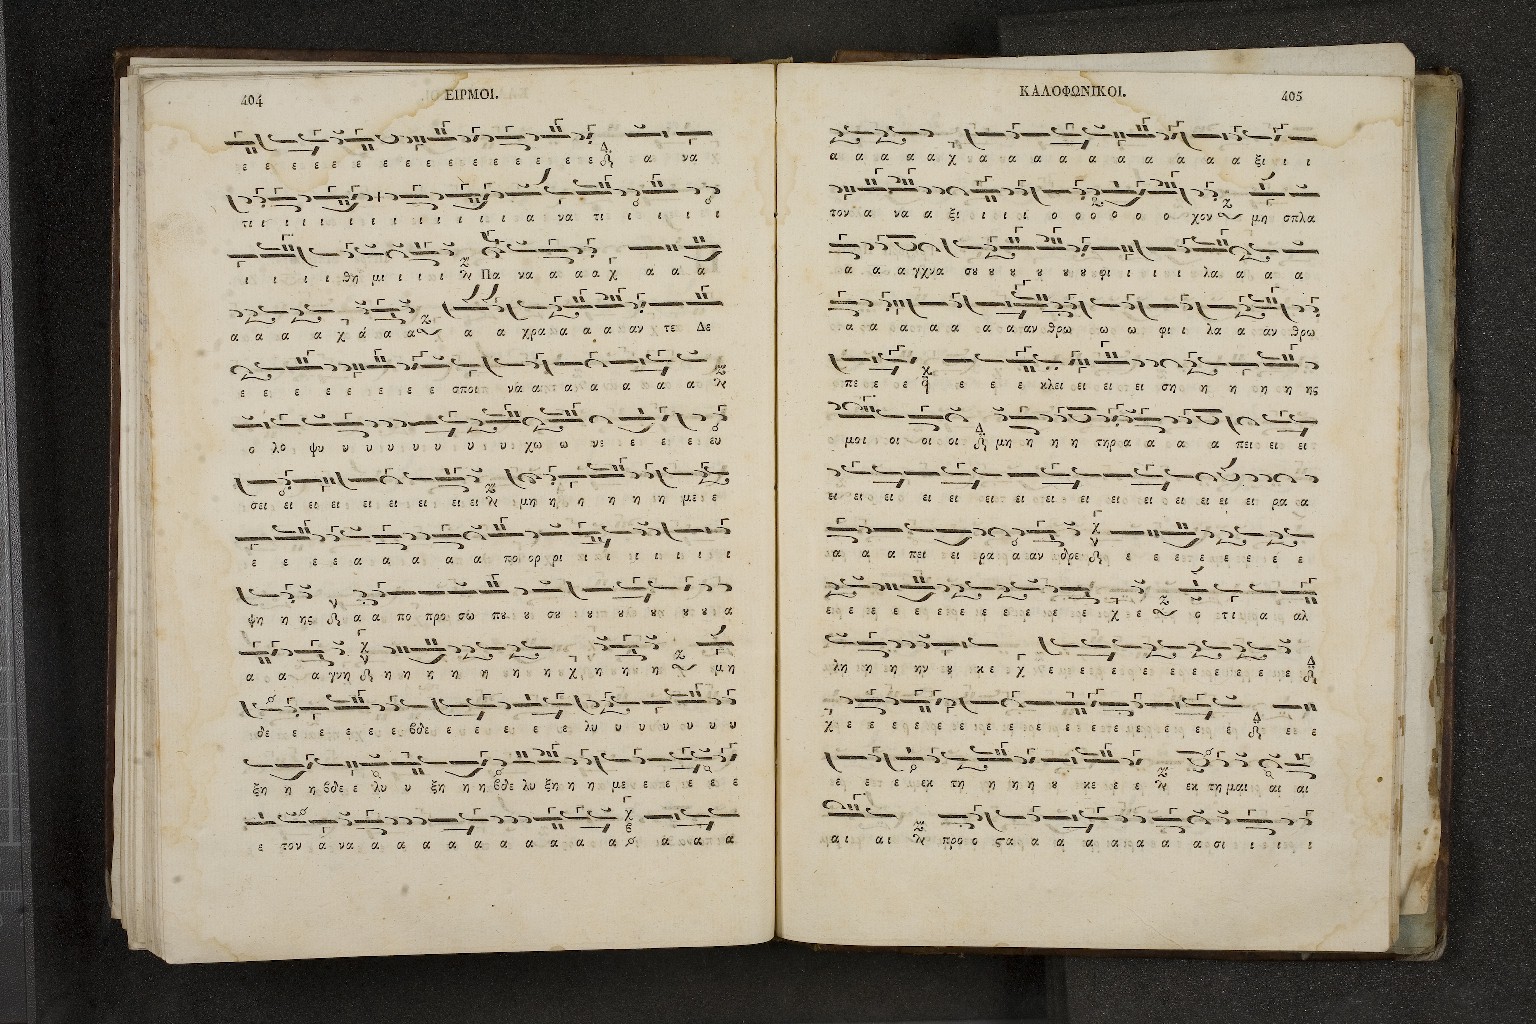 404
ΕΙΡΜΟΙ.
ε ε ε ε ε ε ε ε ε ε ε ε ε ε ε α να
τι ι ι ι ι ι ι ι ι ι ι α να τι ι ι ι ι
ι ι ι ι θη μι ι ι ι Πα να α α α χ α α α
α α α α χ ά α α α α χρα α α α αν τε Δε
ε ε ε ε ε ε ε ε σποι να α α α α α α α
ο λο ψυ υ υ υ υ υ υ υ χω ω νε ε ε ε ευ
σει ει ει ει ει ει ει ει ει μη η η η η η η με ε
ε ε ε ε α α α α α πο ορ ρι ι ι ι ι ι ι ι
ψη η ης α α πο προ σω που ου σου ου ου ου ου ου α
α α α γνη η η η η η η η χ η η η η μη
δε ε ε ε ε ε βδε ε ε ε ε ε λυ υ υ υ υ υ
ξη η η βδε ε λυ υ ξη η η βδε λυ ξη η η με ε ε ε ε ε
ε τον ά να α α α α α α α α α α α α α α
ΚΑΛΟΦΩΝΙΚΟΙ.
405
α α α α α χ α α α α α α α α α α ξι ι ι
τον α να α ξι ι ι ι ο ο ο ο ο ο χον μη σπλα
α α α γχνα σου ου ου ου ου ου φι ι ι ι λα α α α
α α α α α α α αν θρω ω ω φι ι λα α αν θρω
πε ε ε ε ε ε κλει ει ει ει ει ση η η η η ης
μοι οι οι οι μη η η η τηρ α α α α πει ει ει
ει ει ει ει ει ει ει ει ει ει ει ει ει ει ει ρα α
α α α πει ει ρα α αν δρε ε ε ε ε ε ε ε ε
ε ε ε ε ε ε ε ε ε ε ε ε χ ε ο τι α αλ
λη η η ην ου κε χ ε ε ε ε ε ε ε ε ε ε
χ ε ε ε ε ε ε ε ε ε ε ε ε ε ε ε ε ε
ε ε ε εκ τη η η η ου κε ε ε εκ τη μαι αι αι
αι αι προ ο ςα α α α α α α α σι ι ι ι